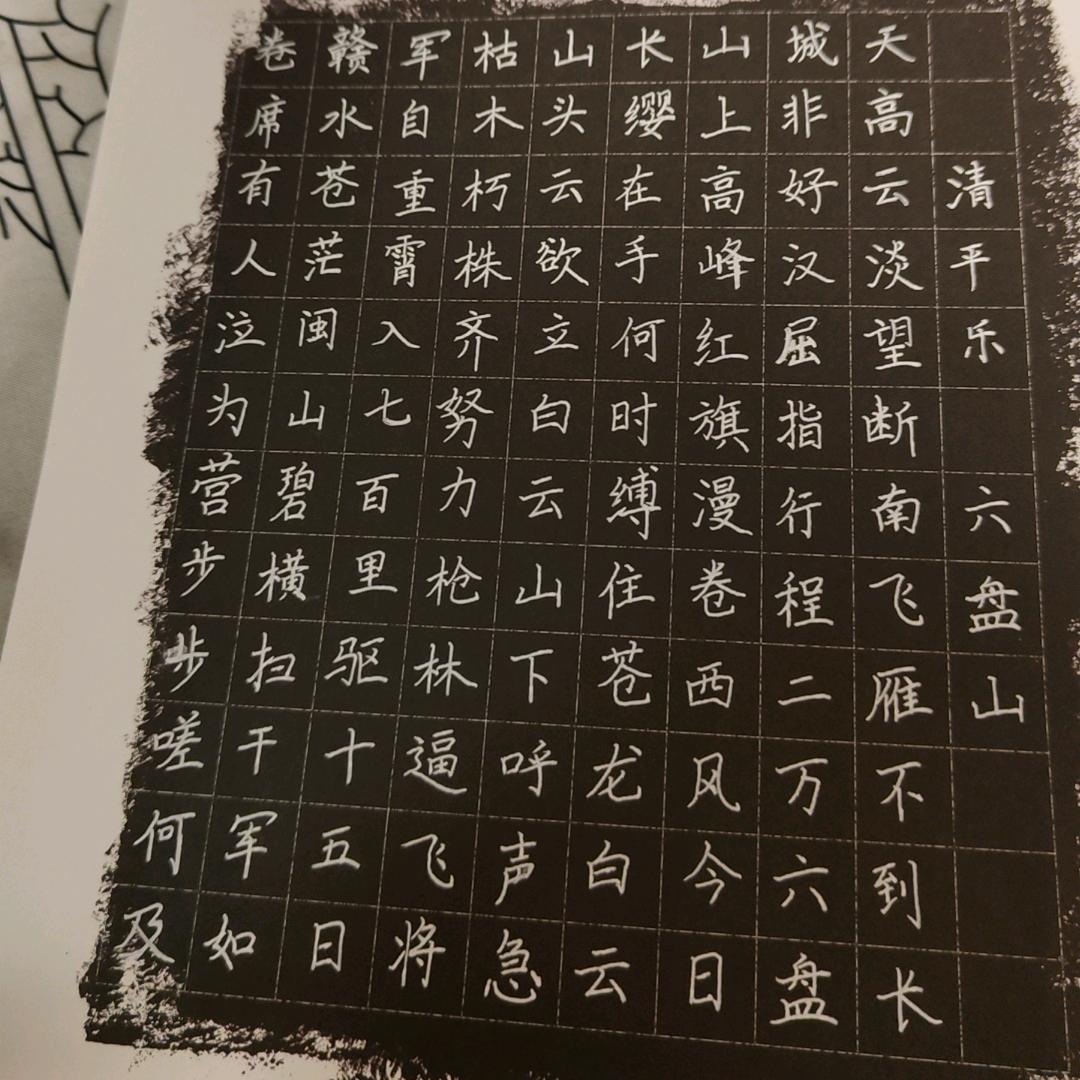 清平乐 六盘山
天高云淡望断南飞雁不到长
城非好汉屈指行程二万六盘
山上高峰红旗漫卷西风今日
长缨在手何时缚住苍龙白云
山头云欲立白云山下呼声急
枯木朽株齐努力枪林逼飞将
军自重霄入七百里驱十五日
赣水苍茫闽山碧横扫千军如
卷席有人泣为营步步嗟何及